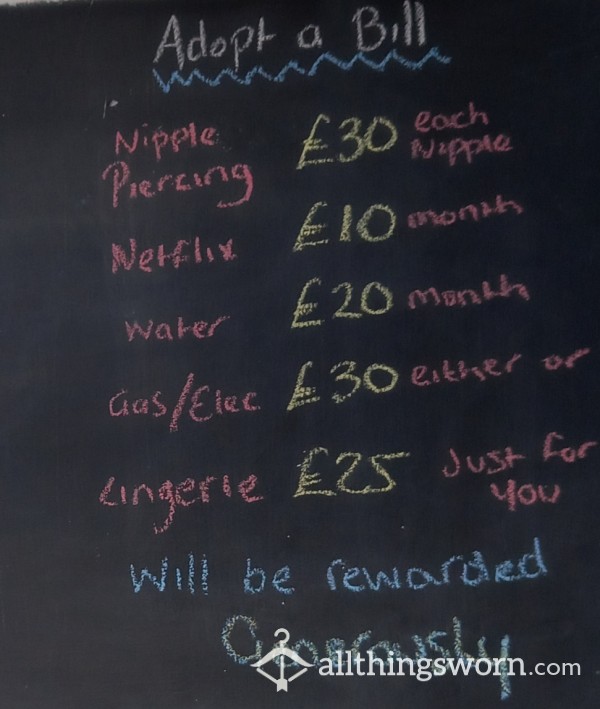 Adopt a Bill
Nipple Piercing £30 each Nipple
Netflix £10 month
Water £20 month
Gas/Elec £30 either or
Lingerie £25 Just for you
Will be rewarded
Generously
allthingsworn.com